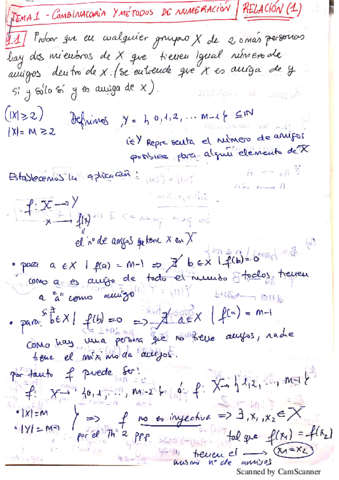 TEMA 1 - COMBINATORIA Y MÉTODOS DE NUMERACIÓN / RELACIÓN (1)
1.1 Probar que en cualquier grupo X de 2 o más personas
hay dos miembros de X que tienen igual número de
amigos dentro de X. (Se entiende que X es amiga de y
si y sólo si y es amiga de X).
(|X| ≥ 2)
|X| = m ≥ 2
Definimos Y = {0,1,2, ... m-1} ⊆ ℕ
i∈Y representa el número de amigos
posibles para algún elemento de X
Establecemos la aplicación:
f: X → Y
x → f(x)
el nº de amigos que tiene x en X
• para a ∈ X | f(a) = m-1 => ∄ b ∈ X | f(b) = 0
como a es amigo de todo el mundo todos tienen
a "a" como amigo
• para b ∈ X | f(b) = 0 => ∄ a ∈ X | f(a) = m-1
como hay una persona que no tiene amigos, nadie
tiene el máximo de amigos.
por tanto f puede ser:
f: X → {0,1, ..., m-2} ó f: X → {1,2, ..., m-1}
• |X| = m
• |Y| = m-1
=> f no es inyectiva => ∃ x₁, x₂ ∈ X
por el Th 2 PPP
tal que f(x₁) = f(x₂)
tienen el
mismo nº de amigos
Scanned by CamScanner